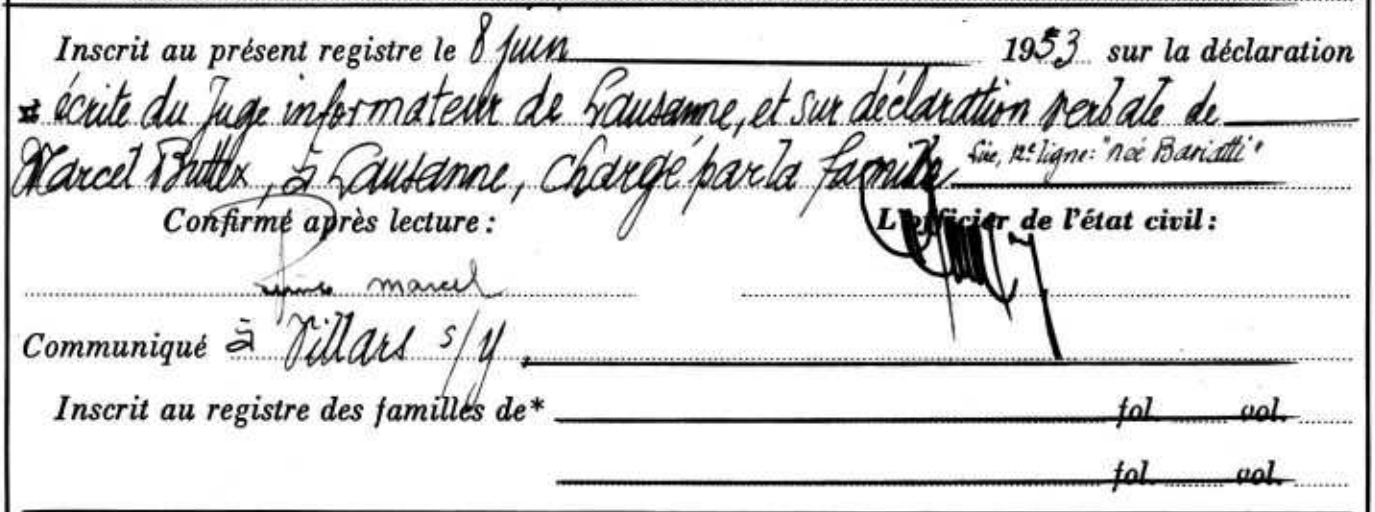 Inscrit au présent registre le 8 juin 1953 sur la déclaration
écrite du Juge informateur de Lausanne, et sur déclaration verbale de
Marcel Buttex, à Lausanne, chargé par la famille lire, 12e ligne: "née Bariatti"
Confirmé après lecture: L'officier de l'état civil:
marcel
Communiqué à Villars s/Y
Inscrit au registre des familles de* fol. vol.
fol. vol.